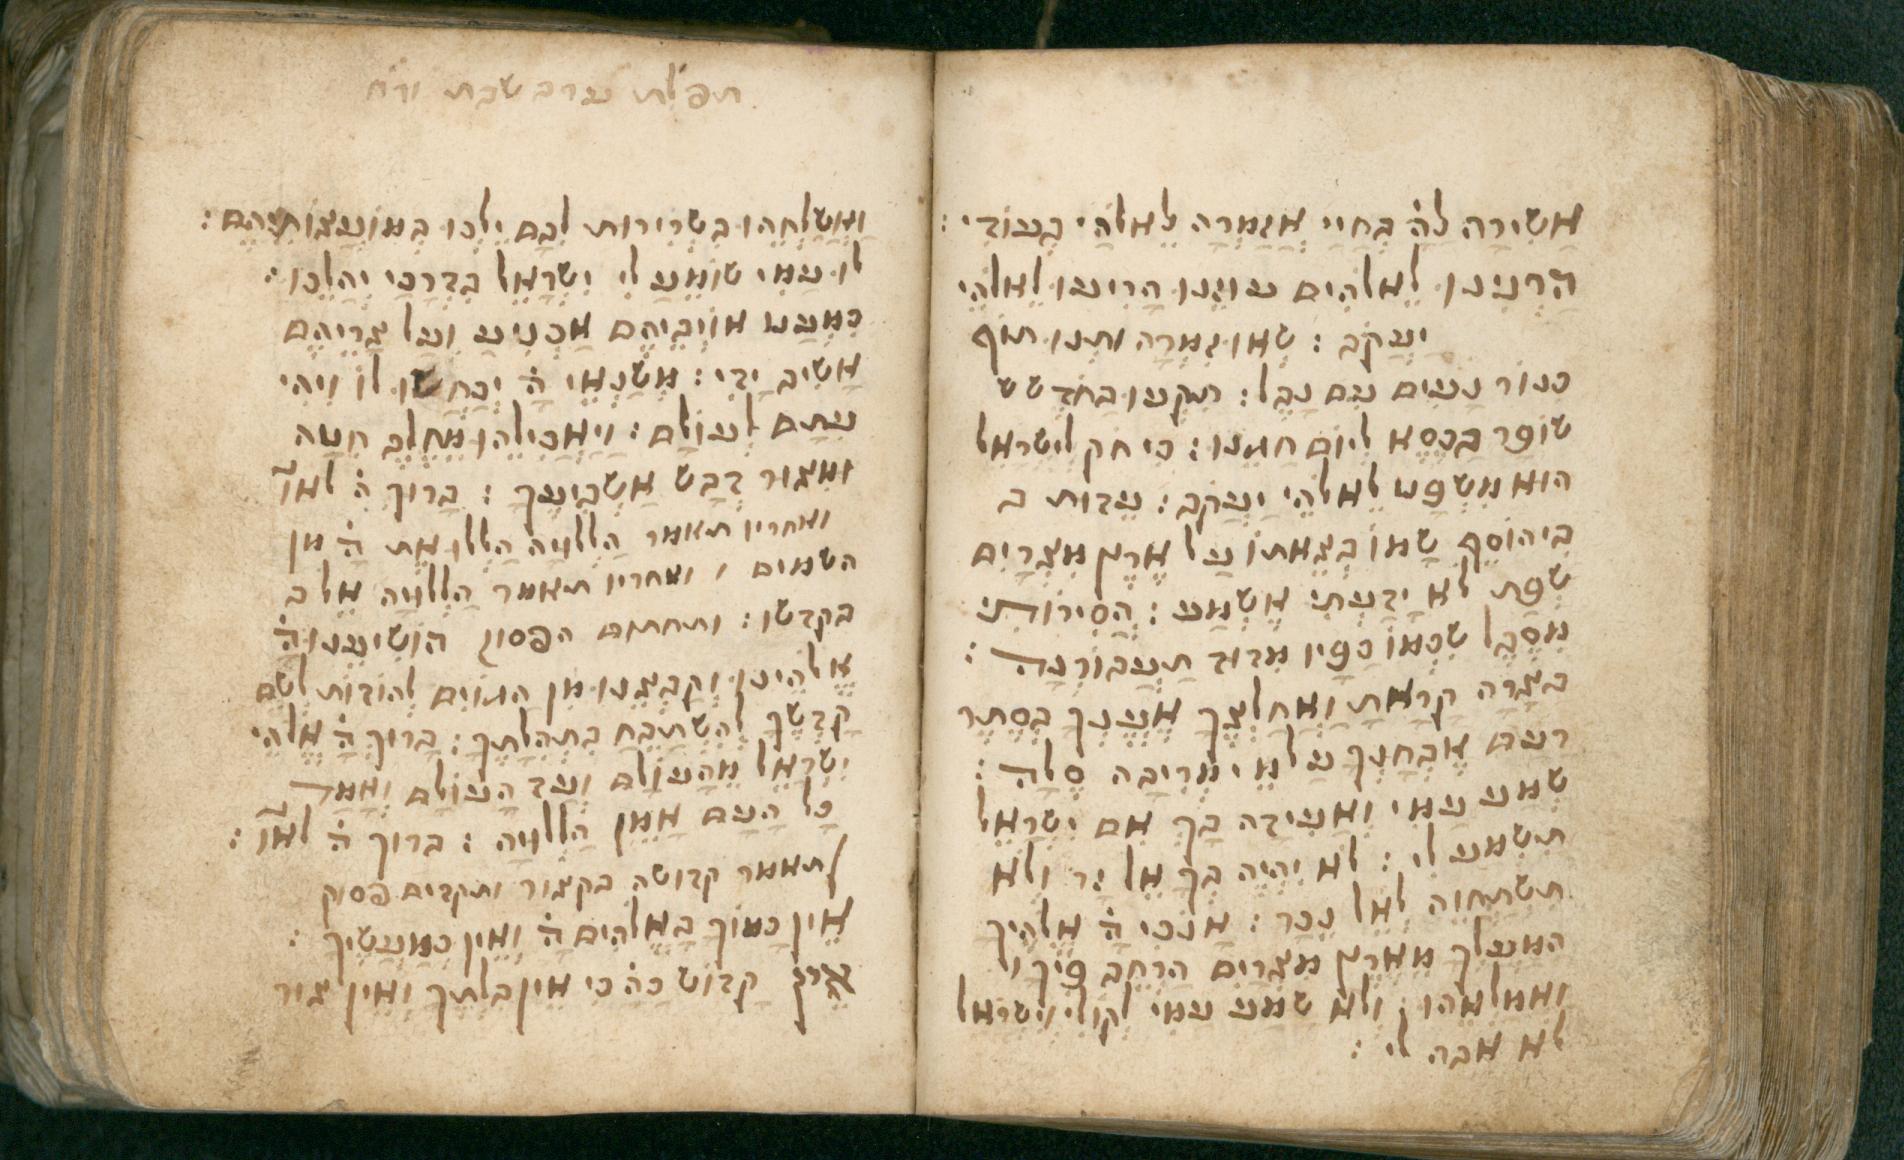 אָשִׁירָה לַה̇ בְּחַיָי אֲזַמְרָה לֵאלֹהַי בְּעוֹדִי :
הַרְנִינוּ לֵאלֹהִים עוּזֵנוּ הָרִיעוּ לֵאלֹהֵי
יַעֲקֹב : שְׂאוּ זִמְרָה וּתְנוּ תוֹף
כנוֹר נָעִים עִם נָבֶל : תִקְעוּ בַחֹדֶשׁ ש
שׁוֹפָר בַּכֶּסֶא לְיוֹם חַגֵּנוּ : כִּי חֹק לְיִשְׂרָאֵל
הוּא מִשְׁפָּט לֵאלֹהֵי יַעֲקֹב : עֵדוּת ב
בִּיהוֹסֵף שָׂמוֹ בְּצֵאתוֹ עַל אֶרֶץ מִצְרָיִם
שְׂפַת לֹא יָדַעְתִּי אֶשְׁמָע : הֲסִירוֹתִי
מִסֵּבֶל שִׁכְמוֹ כַּפָּיו מִדּוּד תַּעֲבוֹרְנָה :
בַּצָּרָה קָרָאתָ וָאֲחַלְּצֶךָּ אֶעֶנְךָ בְּסֵתֶר
רַעַם אֶבְחָנְךָ עַל מֵי מְרִיבָה סֶלָה :
שְׁמַע עַמִּי וְאָעִידָה בָּךְ אִם יִשְׂרָאֵל
תִּשְׁמַע לִי : לֹא יִהְיֶה בְךָ אֵל זָר וְלֹא
תִשְׁתַּחֲוֶה לְאֵל נֵכָר : אָנֹכִי ה̇ אֱלֹהֶיךָ
הַמַּעַלְךָ מֵאֶרֶץ מִצְרָיִם הַרְחֶב פִּיךָ ו
וַאֲמַלְאֵהוּ : וְלֹא שָׁמַע עַמִּי לְקוֹלִי וְיִשְׂרָאֵל
לֹא אָבָה לִי :
תפלת ערב שבת ור״ח
וָאֲשַׁלְּחֵהוּ בִּשְׁרִירוּת לִבָּם יֵלְכוּ בְּמוֹעֲצוֹתֵיהֶם :
לוּ עַמִּי שׁוֹמֵעַ לִי יִשְׂרָאֵל בִּדְרָכַי יְהַלֵּכוּ :
כִּמְעַט אוֹיְבֵיהֶם אַכְנִיעַ וְעַל צָרֵיהֶם
אָשִׁיב יָדִי : מְשַׂנְאֵי ה̇ יְכַחֲשׁוּ לוֹ וִיהִי
עִתָּם לְעוֹלָם : וַיַּאֲכִילֵהוּ מֵחֵלֶב חִטָּה
וּמִצּוּר דְּבַשׁ אַשְׂבִּיעֶךָ : בָּרוּךְ ה̇ לאו״א
ואחריו תאמר הַלְלוּיָהּ הַלְלוּ אֶת ה̇ מִן
השמים ו ואחריו תאמר הַלְלוּיָהּ אֵל ב
בקדשו : ותחתום הפסוק הוֹשִׁיעֵנוּ ה̇
אֱלֹהֵינוּ וְקַבְּצֵנוּ מִן הַגּוֹיִם לְהוֹדוֹת לְשֵׁם
קָדְשֶׁךָ לְהִשְׁתַּבֵּחַ בִּתְהִלָּתֶךָ : בָּרוּךְ ה̇ אֱלֹהֵי
יִשְׂרָאֵל מֵהָעוֹלָם וְעַד הָעוֹלָם וְאָמַר
כָּל הָעָם אָמֵן הַלְלוּיָהּ : ברוך ה̇ לאו״א :
ותאמר קדושה בקצור ותקדים פסוק
אֵין כָּמוֹךָ בָאֱלֹהִים ה̇ וְאֵין כְּמַעֲשֶׂיךָ :
אין קָדוֹשׁ כַּה̇ כִּי אֵין בִּלְתֶּךָ וְאֵין צוּר